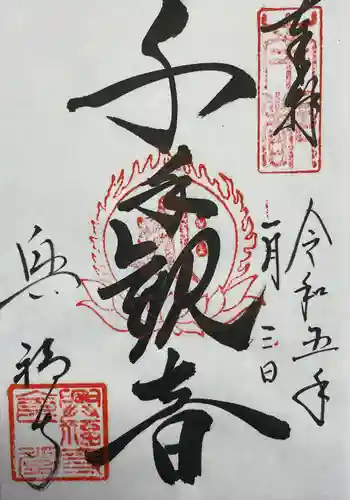 奉拝
令和五年
一月三日
千手観音
興福寺